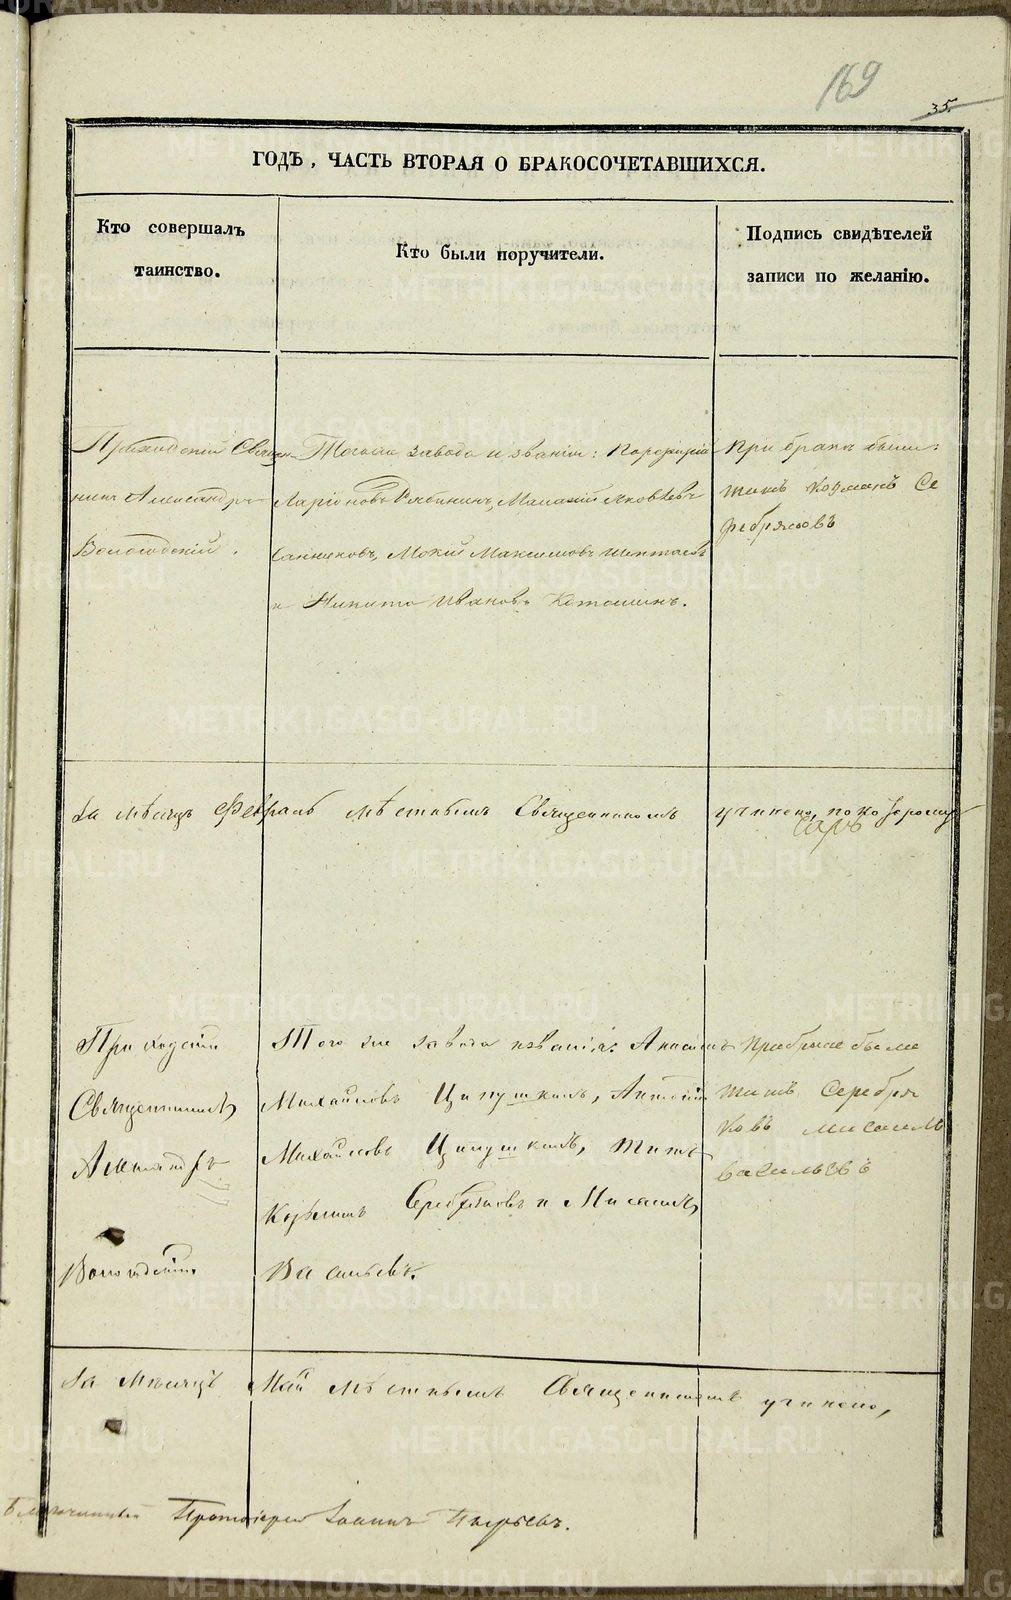 169
35.
ГОДЪ, ЧАСТЬ ВТОРАЯ О БРАКОСОЧЕТАВШИХСЯ.
Кто совершалъ
таинство.
Кто были поручители.
Подпись свидѣтелей
записи по желанію.
Приходскій Священ
никъ Александръ
Вологодскій.
завода и званія: Порфирій
Ларіоновъ Рябининъ, Яковлевъ
Санниковъ, Мокій Максимовъ
и Никита Ивановъ
При бракѣ были:
Титъ Козминъ Се
ребряковъ
За мѣсяцъ Февраль мѣстнымъ Священникомъ учинено, по которому
Приходскій
Священникъ
Александръ
Вологодскій.
Того же завода и званія:
Михайловъ Ципушкинъ, Антоній
Михайловъ Ципушкинъ, Титъ
Серебряковъ и Мисаилъ
Васильевъ.
При бракѣ были
Титъ Серебря
ковъ Мисаилъ
Васильевъ
За мѣсяцъ Май мѣстнымъ Священникомъ учинено,
Благочинный Протоіерей Іоаннъ
METRIKI.GASO-URAL.RU